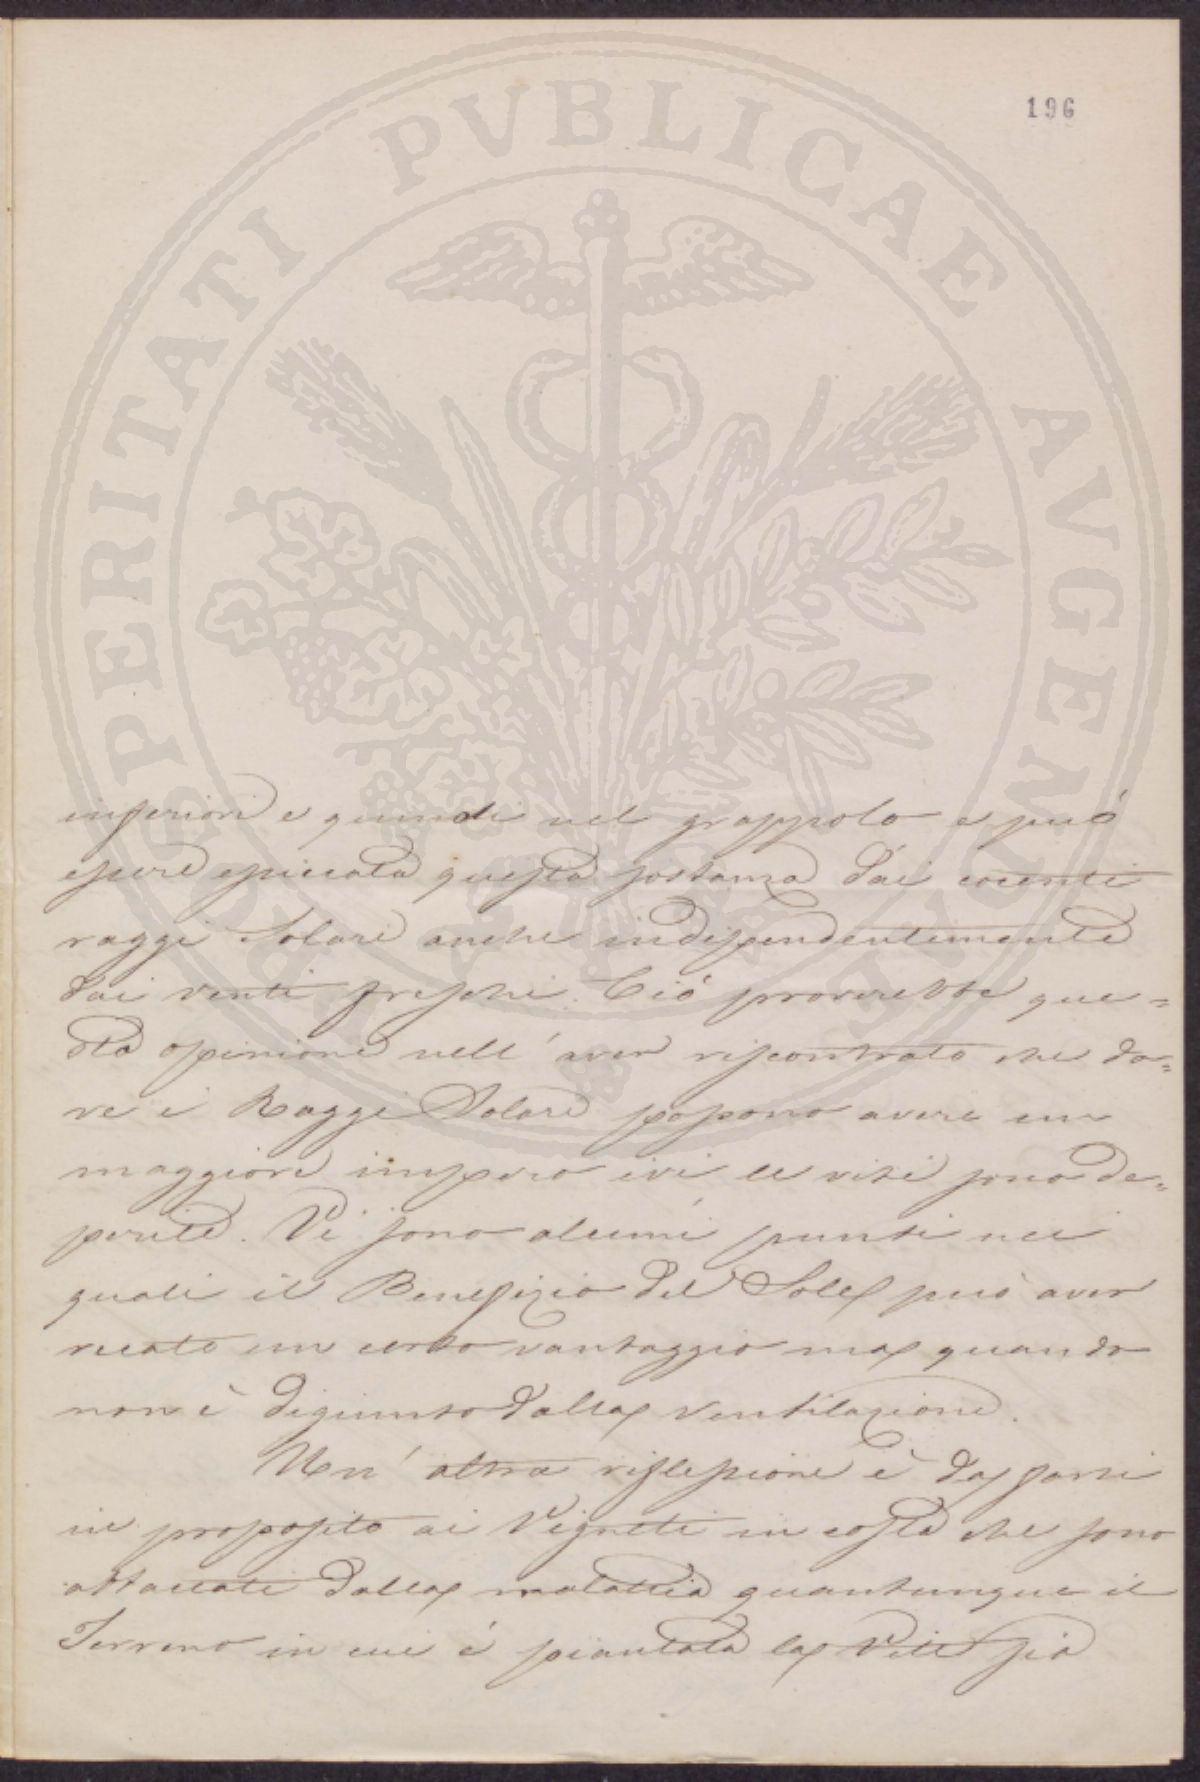 196
PROSPERITATI PVBLICAE AVGENDAE
inferiori e quindi nel grappolo e può
essere essiccata questa sostanza dai cocenti
raggi Solari anche indipendentemente
dai venti freschi. Ciò proverebbe que=
sta opinione nell'aver riscontrato che do=
ve i Raggi Solari possono avere un
maggiore impero ivi le viti sono de=
perite. Vi sono alcuni punti nei
quali il Benefizio del Sole può aver
recato un certo vantaggio ma quando
non è digiunto dalla ventilazione.
Un'altra riflessione è da farsi
in proposito ai Vigneti in costa che sono
attaccati dalla malattia quantunque il
Terreno in cui è piantata la Vite sia